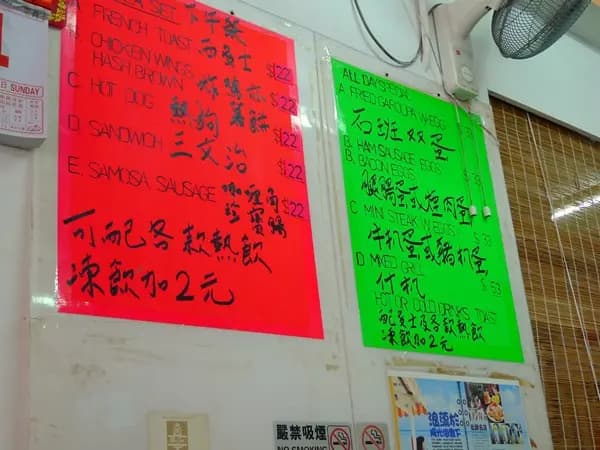 SUNDAY
TEA SET
FRENCH TOAST 西多士 $22
CHICKEN WINGS
HASH BROWN 炸雞亦薯餅 $22
C. HOT DOG 熱狗 $22
D. SANDWICH 三文治 $22
E. SAMOSA SAUSAGE 咖喱角 $22
可配各款熱飲
凍飲加2元
ALL DAY SPECIAL
A FRIED GAROUPA W EGG
石班双蛋
B. HAM SAUSAGE EGGS
B, BACON EGGS
腿腸蛋或煙肉蛋
C MINI STEAK W EGGS
牛机蛋或豬机蛋
D MIXED GRILL
什机 $53
HOT OR COLD DRINKS, TOAST
配多士及各款熱飲
凍飲加2元
嚴禁吸煙
NO SMOKING